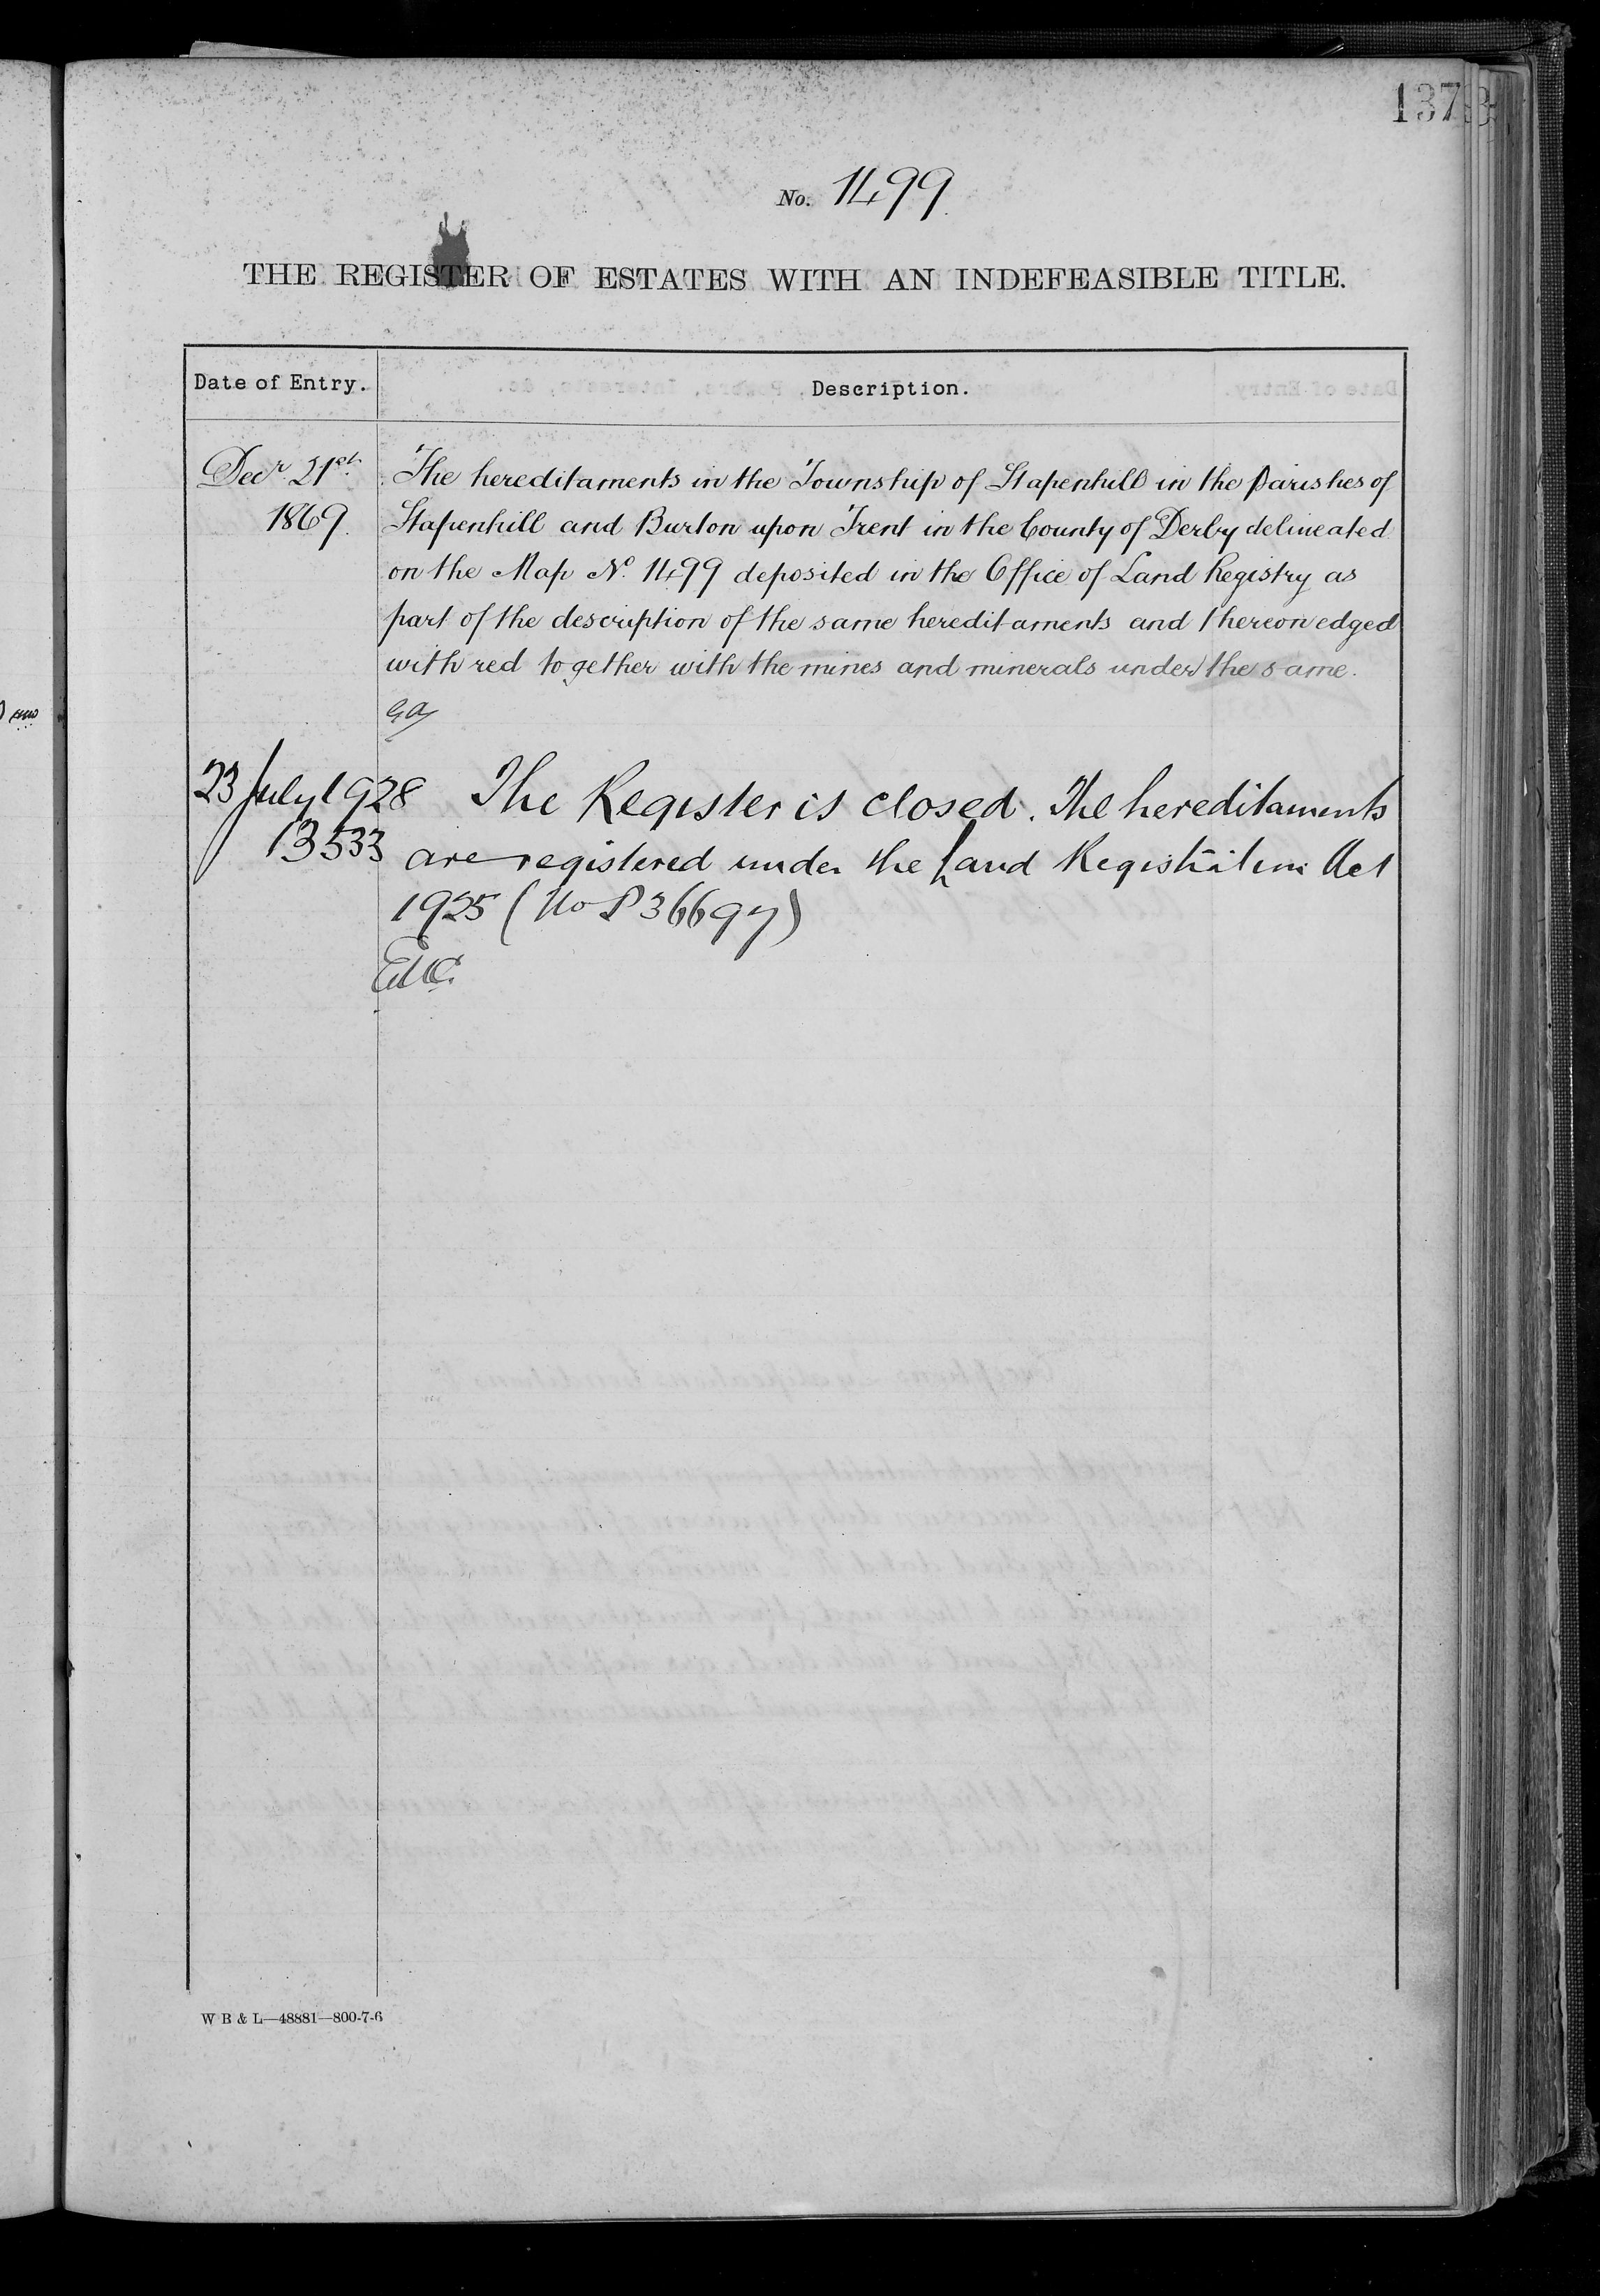 137
No. 1499
THE REGISTER OF ESTATES WITH AN INDEFEASIBLE TITLE.
Date of Entry. Description.
Decr. 21st. The hereditaments in the Township of Stapenhill in the parishes of
1869. Stapenhill and Burton upon Trent in the County of Derby delineated
on the Map No. 1499 deposited in the Office of Land Registry as
part of the description of the same hereditaments and thereon edged
with red together with the mines and minerals under the same.
23 July 1928 The Register is closed. The hereditaments
13533 are registered under the Land Registration Act
1925 (No P36697)
W B & L—48881—800-7-6